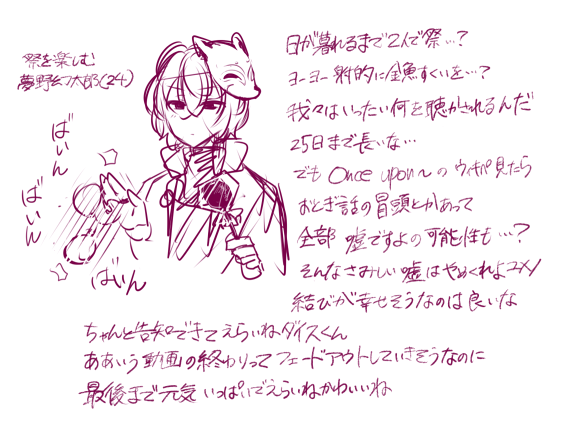 祭を楽しむ
夢野幻太郎(24)
ばいん
ばいん
ばいん
日が暮れるまで2人で祭…?
ヨーヨー射的に金魚すくいを…?
我々はいったい何を聴かされるんだ
25日まで長いな…
でも Once upon〜のウィキペ見たら
おとぎ話の冒頭とかあって
全部 嘘ですよの可能性も…?
そんなさみしい嘘はやめくれよユメノ
結びが幸せそうなのは良いな
ちゃんと告知できてえらいねダイスくん
ああいう動画の終わりってフェードアウトしていきそうなのに
最後まで元気いっぱいでえらいねかわいいね